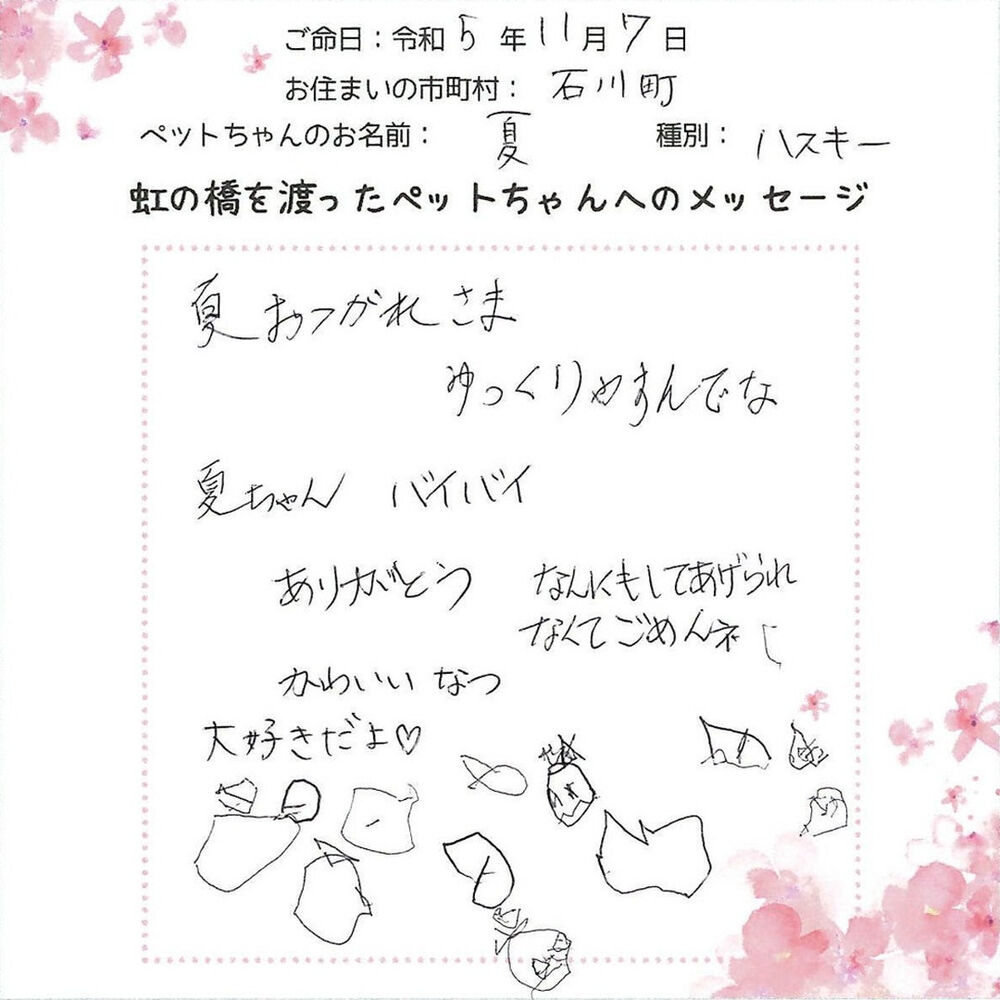 ご命日：令和5年11月7日
お住まいの市町村：石川町
ペットちゃんのお名前：夏 種別：ハスキー
虹の橋を渡ったペットちゃんへのメッセージ
夏おつがれさま
ゆっくりやすんでな
夏ちゃん バイバイ
ありがとう
なんにもしてあげられ
なくてごめんネ
かわいい なつ
大好きだよ♡